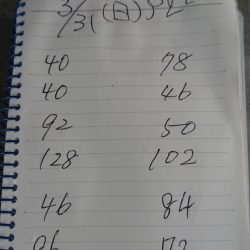 3/31(日)
40 78
40 46
92 50
128 102
46 84